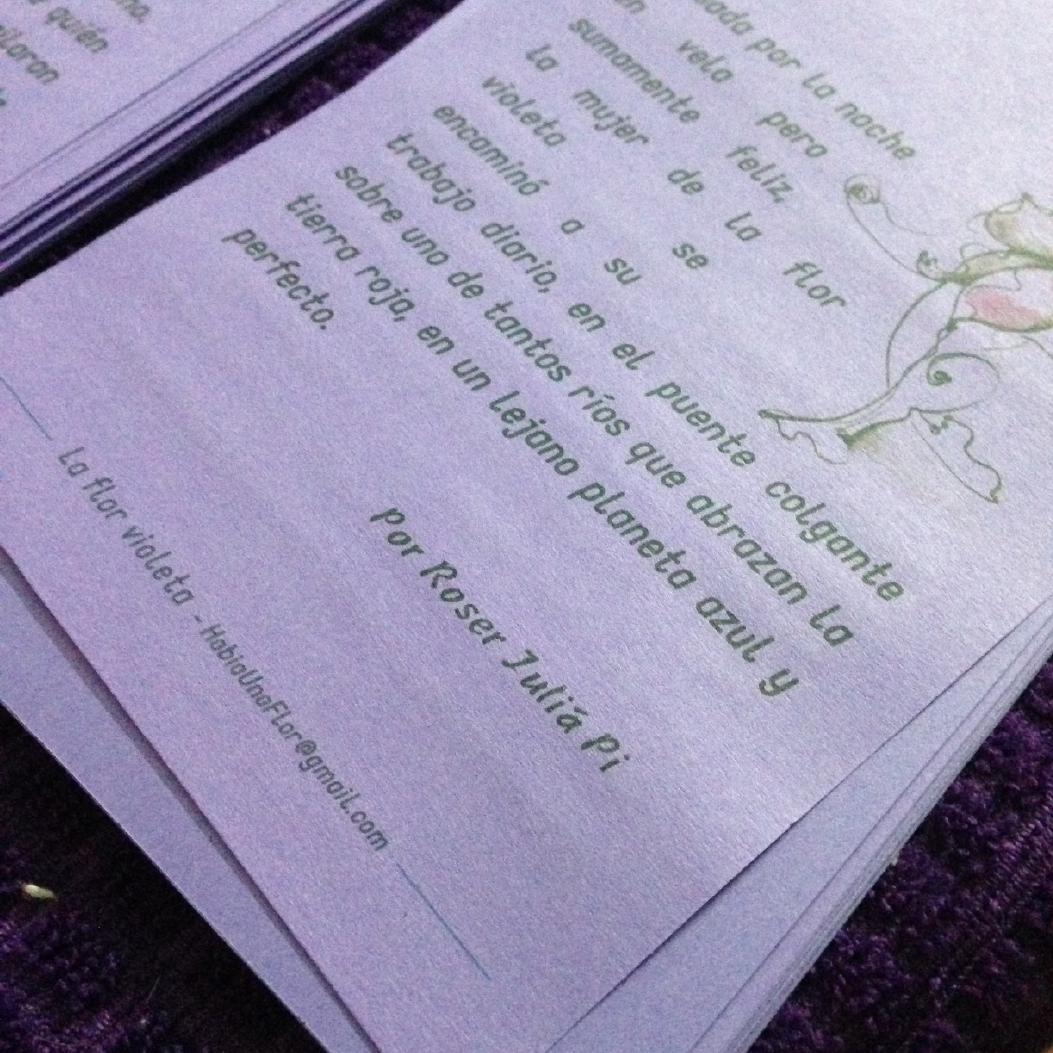 quién
por la noche
velo pero
sumamente feliz,
la mujer de la flor
violeta se
encaminó a su
trabajo diario, en el puente colgante
sobre uno de tantos ríos que abrazan la
tierra roja, en un lejano planeta azul y
perfecto.
Por Roser Juliá Pi
La flor violeta - HabiaUnaFlor@gmail.com